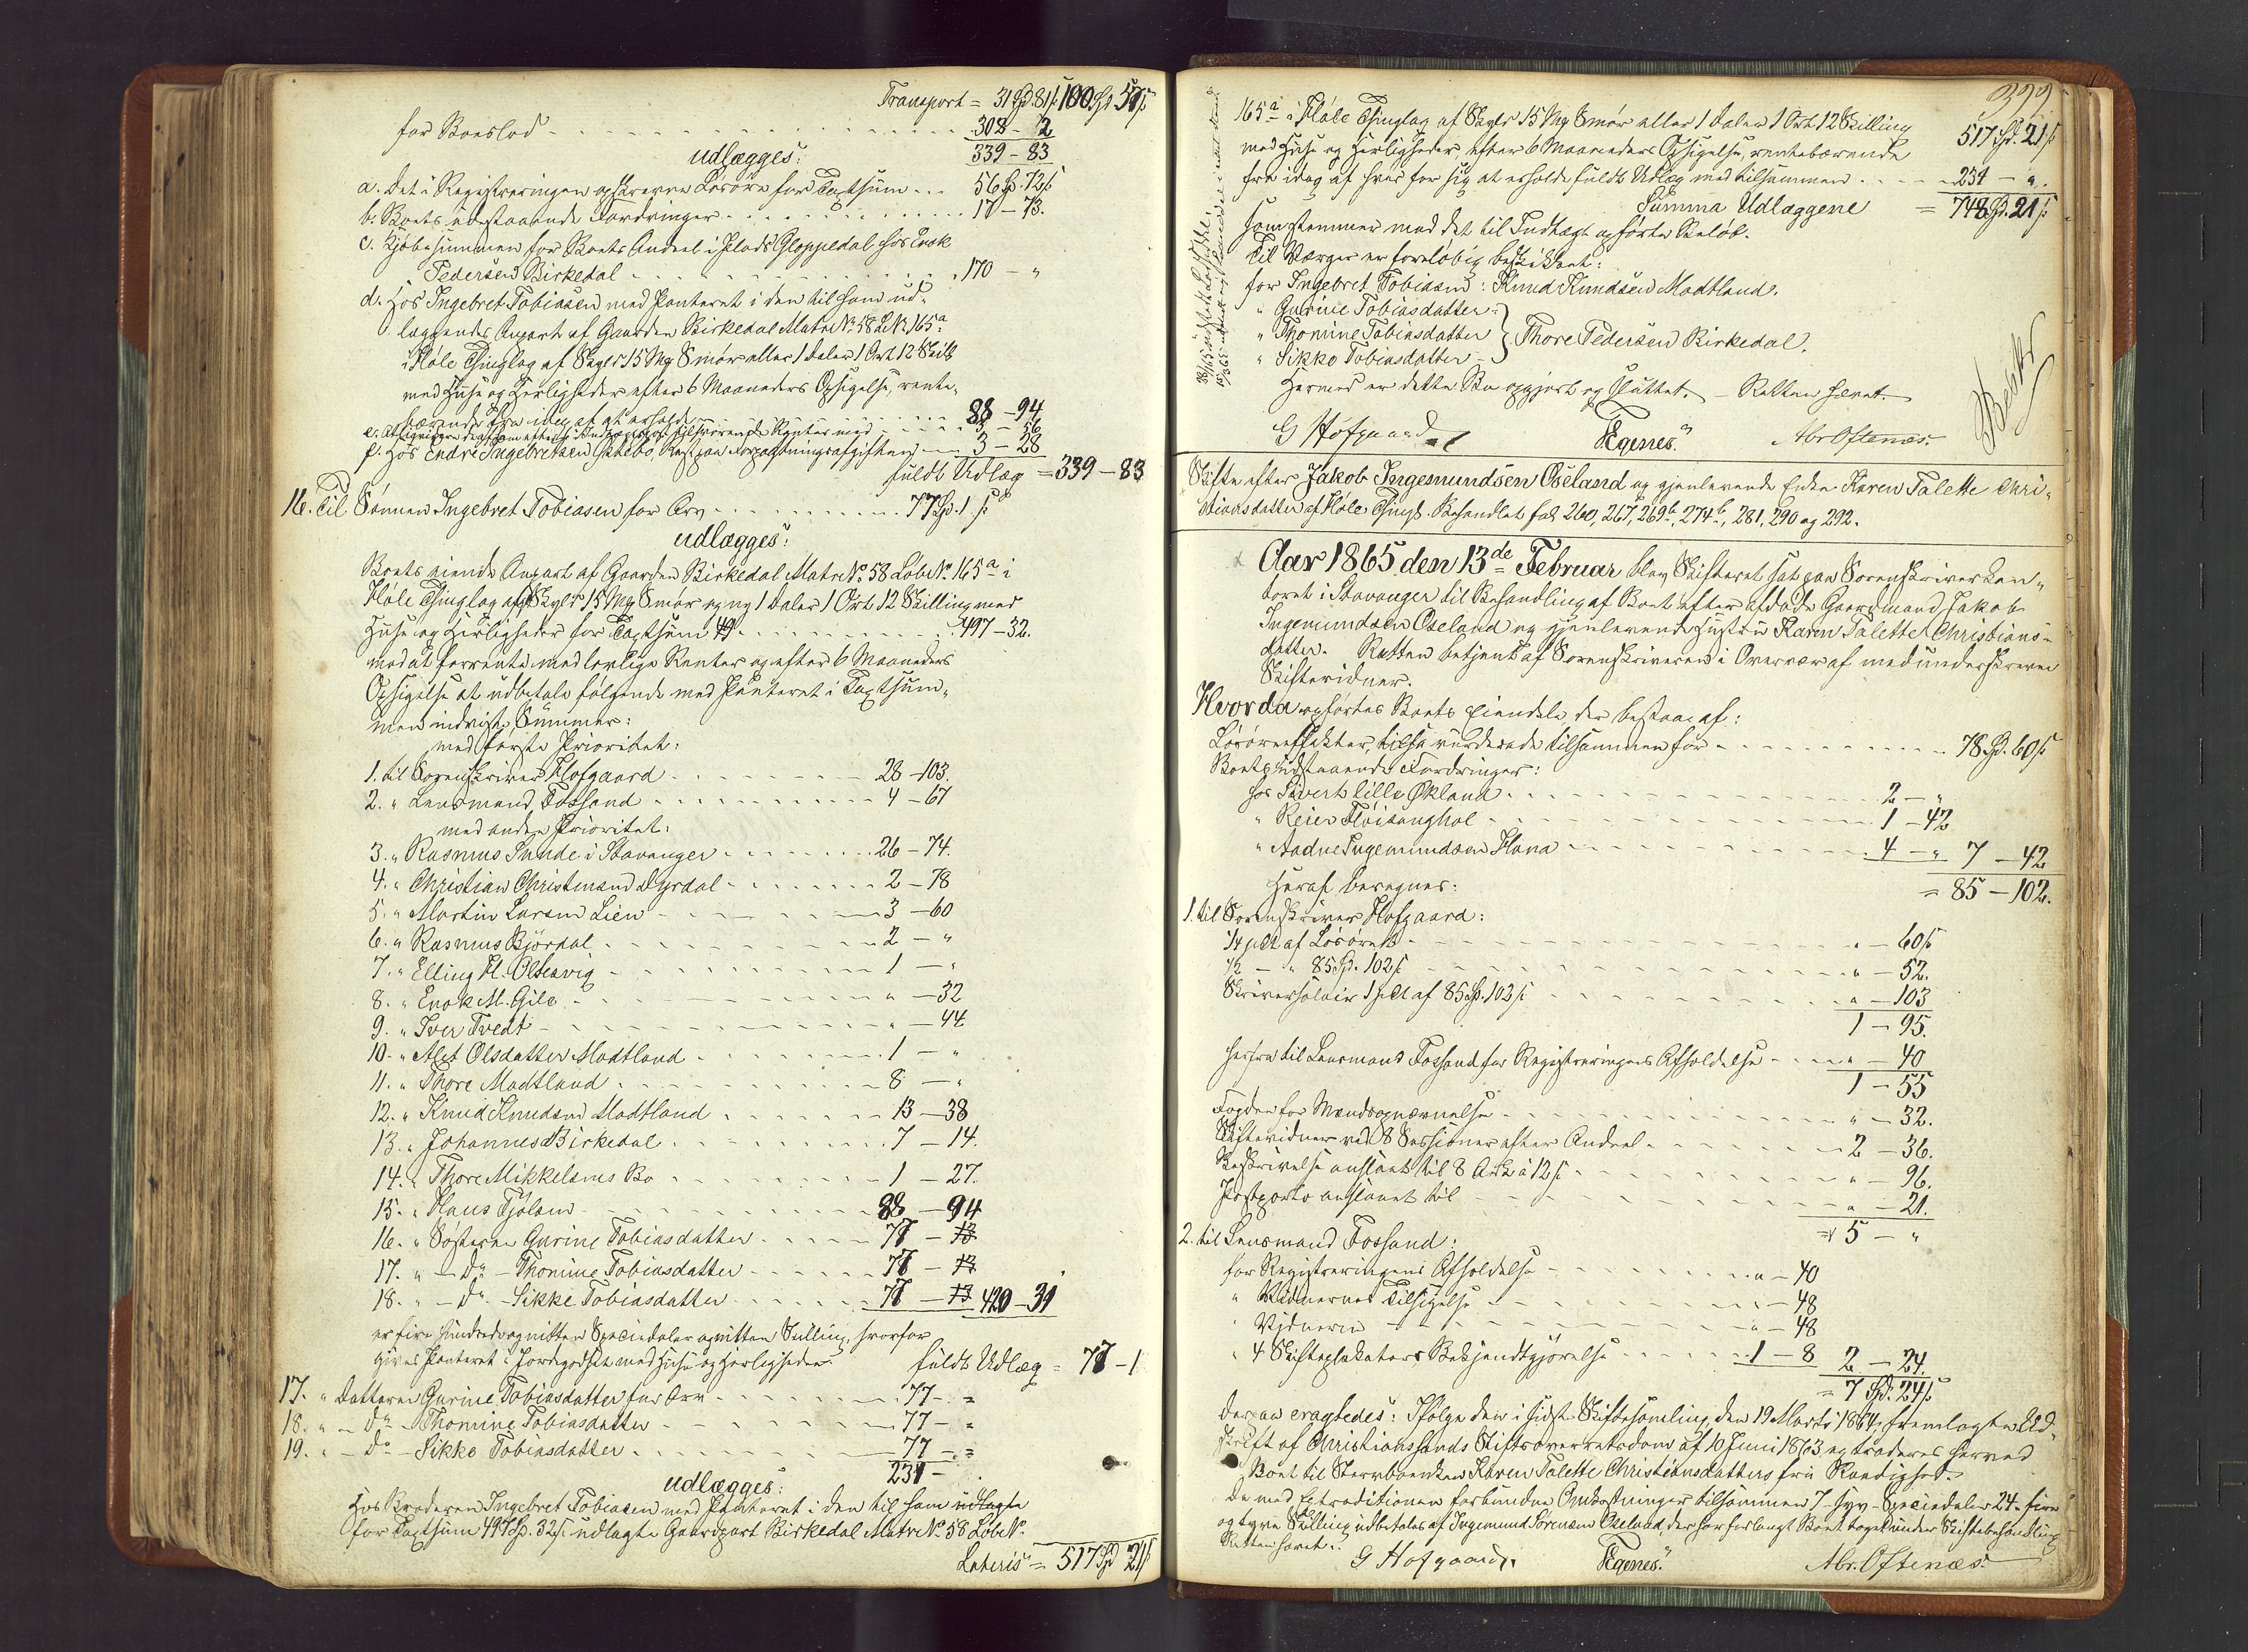 Transport = 31 Spd. 81 ſ. 100 Spd. 57 ſ
for Boeslod - - - 308 - 2
udlægges: 339 - 83
a. Det i Registreringen opskrevne Løsøre for Taxtsum - - 56 Spd. 72 ſ
b. Boets udestaaende Fordringer - - - 17 - 73.
c. Kjøbesummen for Boets Andeel i Plads Gloppedal hos Enok
Pedersen Birkedal - - - 170 - "
d. Hos Ingebret Tobiasen med Panteret i den til ham ud-
læggende Anpart af Gaarden Birkedal Matr No 58 L No 165a
i Høle Thinglag af Skyld 15 Mg Smør eller 1 Daler 1 Ort 12 Skill
med Huse og Herligheder efter 6 Maaneders Opsigelse, rente-
bærende fra idag af at erholde - - - 88 - 94
Renter med - - - 3 - 56
f. Hos Endre Ingebretsen Rest paa Forpagtningsafgiften - - 3 - 28
fuldt Udlæg = 339 - 83
16. Til Sønnen Ingebret Tobiasen for Arv - - - 77 Spd. 1 ſ
udlægges:
Boets eiende Anpart af Gaarden Birkedal Matr No 58 Løbe No 165a i
Høle Thinglag af Skyld 15 Mg Smør og ny 1 Daler 1 Ort 12 Skilling med
Huse og Herligheder for Taxtsum - - - 497 - 32.
mod at forrente med lovlige Renter og efter 6 Maaneders
Opsigelse at udbetale følgende med Panteret i Taxtsum-
men indviste Summer:
med første Prioritet:
1. til Sorenskriver Hofgaard - - - 28 - 103.
2. " Lensmand Fossand - - - 4 - 67
med anden Prioritet:
3. " Rasmus Sunde i Stavanger - - - 26 - 74.
4. " Christian Christensen Dyrdal - - - 2 - 78
5. " Martin Larsen Lien - - - 3 - 60
6. " Rasmus Bjørdal - - - 2 - "
7. " Elling H. Oltesvig - - - 1 - "
8. " Enok M. Gilo - - - " - 32
9. " Iver Tvedt - - - " - 44
10. " Alet Olsdatter Madtland - - - 1 - "
11. " Thore Madtland - - - 8 - "
12. " Knud Knudsen Madtland - - - 13 - 38
13. " Johannes Birkedal - - - 7 - 14.
14. " Thore Mikkelsens Bo - - - 1 - 27.
15. " Hans Tjølam - - - 88 - 94
16. " Søsteren Gurine Tobiasdatter - - - 77 -
17. " - Do - Thomine Tobiasdatter - - - 77 -
18. " - Do - Sikke Tobiasdatter - - - 77 - 420 - 31
er fire hundrede og nitten Speciedaler og nitten Skilling, hvorfor
gives Panteret i Jordegodset med Huse og Herligheder. fuldt Udlæg = 77 - 1
17. " Datteren Gurine Tobiasdatter for Arv - - - 77 - "
18. " - Do - Thomine Tobiasdatter - - - 77 - "
19. " - Do - Sikke Tobiasdatter - - - 77 - "
231 -
udlægges:
Hos Broderen Ingebret Tobiasen med Panteret i den til ham udlagte
for Taxtsum 497 Spd. 32 ſ udlagte Gaardpart Birkedal Matr No 58 Løbe No
Lateris = 517 Spd 21 ſ
399
165a i Høle Thinglag af Skyld 15 Mg Smør eller 1 Daler 1 Ort 12 Skilling 517 Spd. 21 ſ
med Huse og Herligheder, efter 6 Maaneders Opsigelse, rentebærende
fra idag af hver for sig at erholde fuldt Udlæg med tilsammen - - - 231 - "
Summa Udlæggene = 748 Spd. 21 ſ
som stemmer med det til Indtægt opførte Beløb.
Til Værger er foreløbig beskikket:
for Ingebret Tobiasen: Knud Knudsen Madtland.
" Gurine Tobiasdatter
" Thomine Tobiasdatter } Thore Pedersen Birkedal.
" Sikke Tobiasdatter
Hermed er dette Bo opgjort og sluttet. - Retten hævet. -
G Hofgaard Egenes. Abr Oftenæs.
Skifte efter Jakob Ingemundsen Øseland og gjenlevende Enke Karen Talette Chri-
stiansdatter af Høle Thingl. Behandlet fol. 260, 267, 269b, 274b, 281, 290 og 292.
Aar 1865 den 13de Februar blev Skifteret sat paa Sorenskriverkon-
toret i Stavanger til Behandling af Boet efter afdøde Gaardmand Jakob
Ingemundsen Øseland og gjenlevende Hustru Karen Talette Christians-
datter. Retten betjent af Sorenskriveren i Overvær af medunderskrevne
Skiftevidner.
Hvorda opførtes Boets Eiendele, der bestaae af:
Løsøreeffekter, tilsa vurderede tilsammen for - - - 78 Spd. 60 ſ
Boets udestaaende Fordringer:
hos Sivert lille Økland - - - 2 - "
" Reier Fløisanghol - - - 1 - 42
" Aadne Ingemundsen Hana - - - 4 - " 7 - 42
= 85 - 102.
Heraf beregnes:
1. til Sorenskriver Hofgaard:
1/4 pCt af Løsøret - - - " - 60 ſ
1/2 - " 85 Spd. 102 ſ - - - " - 52.
Skriversalair 1 pCt af 85 Spd. 102 ſ - - - " - 103
1 - 95.
herfra til Lensmand Fossand for Registreringens Afholdelse - - - " - 40
1 - 55
Fogden for Mændsopnævnelse - - - " - 32.
Skiftevidner ved 8 Sessioner efter Andeel - - - 2 - 36.
Beskrivelse anslaaet til 8 Ark à 12 ſ - - - " - 96.
Postporto anslaaet til - - - " - 21.
= 5 - "
2. til Lensmand Fossand:
for Registreringens Afholdelse - - - " - 40
" Vidnernes Tilsigelse - - - " - 48
" Vidnerne - - - " - 48
" 4 Skifteplakaters Bekjendtgjørelse - - - 1 - 8 2 - 24.
= 7 Spd. 24 ſ
Derpaa eragtedes: Ifølge den i sidste Skiftesamling den 19 Marts 1864 fremlagte Ud-
skrift af Christianssands Stiftsoverretsdom af 10 Juni 1863 extraderes herved
Boet til Stervboenken Karen Talette Christiansdatters frie Raadighed.
De med Extraditionen forbundne Omkostninger tilsammen 7 - syv - Speciedaler 24 - fire
og tyve Skilling udbetales af Ingemund Sørensen Øseland, der har forlangt Boet taget under Skiftebehandling
Retten hævet.
G Hofgaard. Egenes. Abr. Oftenæs.